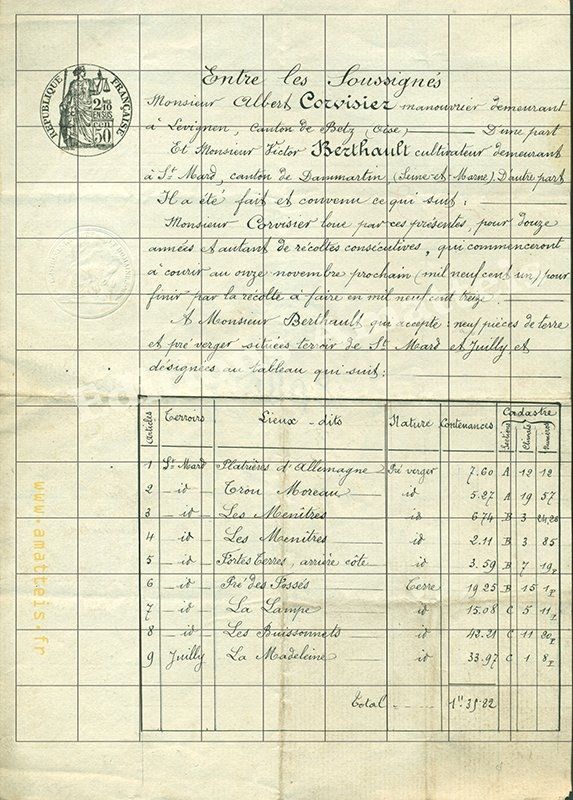 RÉPUBLIQUE FRANÇAISE
2 /10
EN SUS
50 CEN
Entre les Soussignés
Monsieur Albert Corvisier manouvrier demeurant
à Levignen, Canton de Betz (Oise) D'une part
Et Monsieur Victor Berthault cultivateur demeurant
à St Mard, canton de Dammartin, (Seine et Marne). D'autre part
Il a été fait et convenu ce qui suit :
Monsieur Corvisier loue par ces présentes, pour douze
années et autant de récoltes consécutives, qui commenceront
à courir au onze novembre prochain (mil neuf cent un) pour
finir par la récolte à faire en mil neuf cent treize.
A Monsieur Berthault qui accepte : neuf pièces de terre
et pré verger situées terroir de St Mard et Juilly et
désignées au tableau qui suit :
Articles Terroirs Lieux-dits Nature Contenances Cadastre
Sections Climats Numéros
1 St Mard Platrières d'Allemagne Pré verger 7.60 A 12 12
2 id Trou Moreau id 5.27 A 19 57
3 id Les Menîtres id 6.74 B 3 24,26
4 id Les Menitres id 2.11 B 3 85
5 id Fortes Terres, arrière côte id 3.59 B 7 19p
6 id Pré des Fossés Terre 19.25 B 15 1p
7 id La Lampe id 15.08 C 5 11p
8 id Les Buissonnets id 42.21 C 11 20p
9 Juilly La Madeleine id 33.97 C 1 8p
Total 1H 35-82
www.amatteis.fr